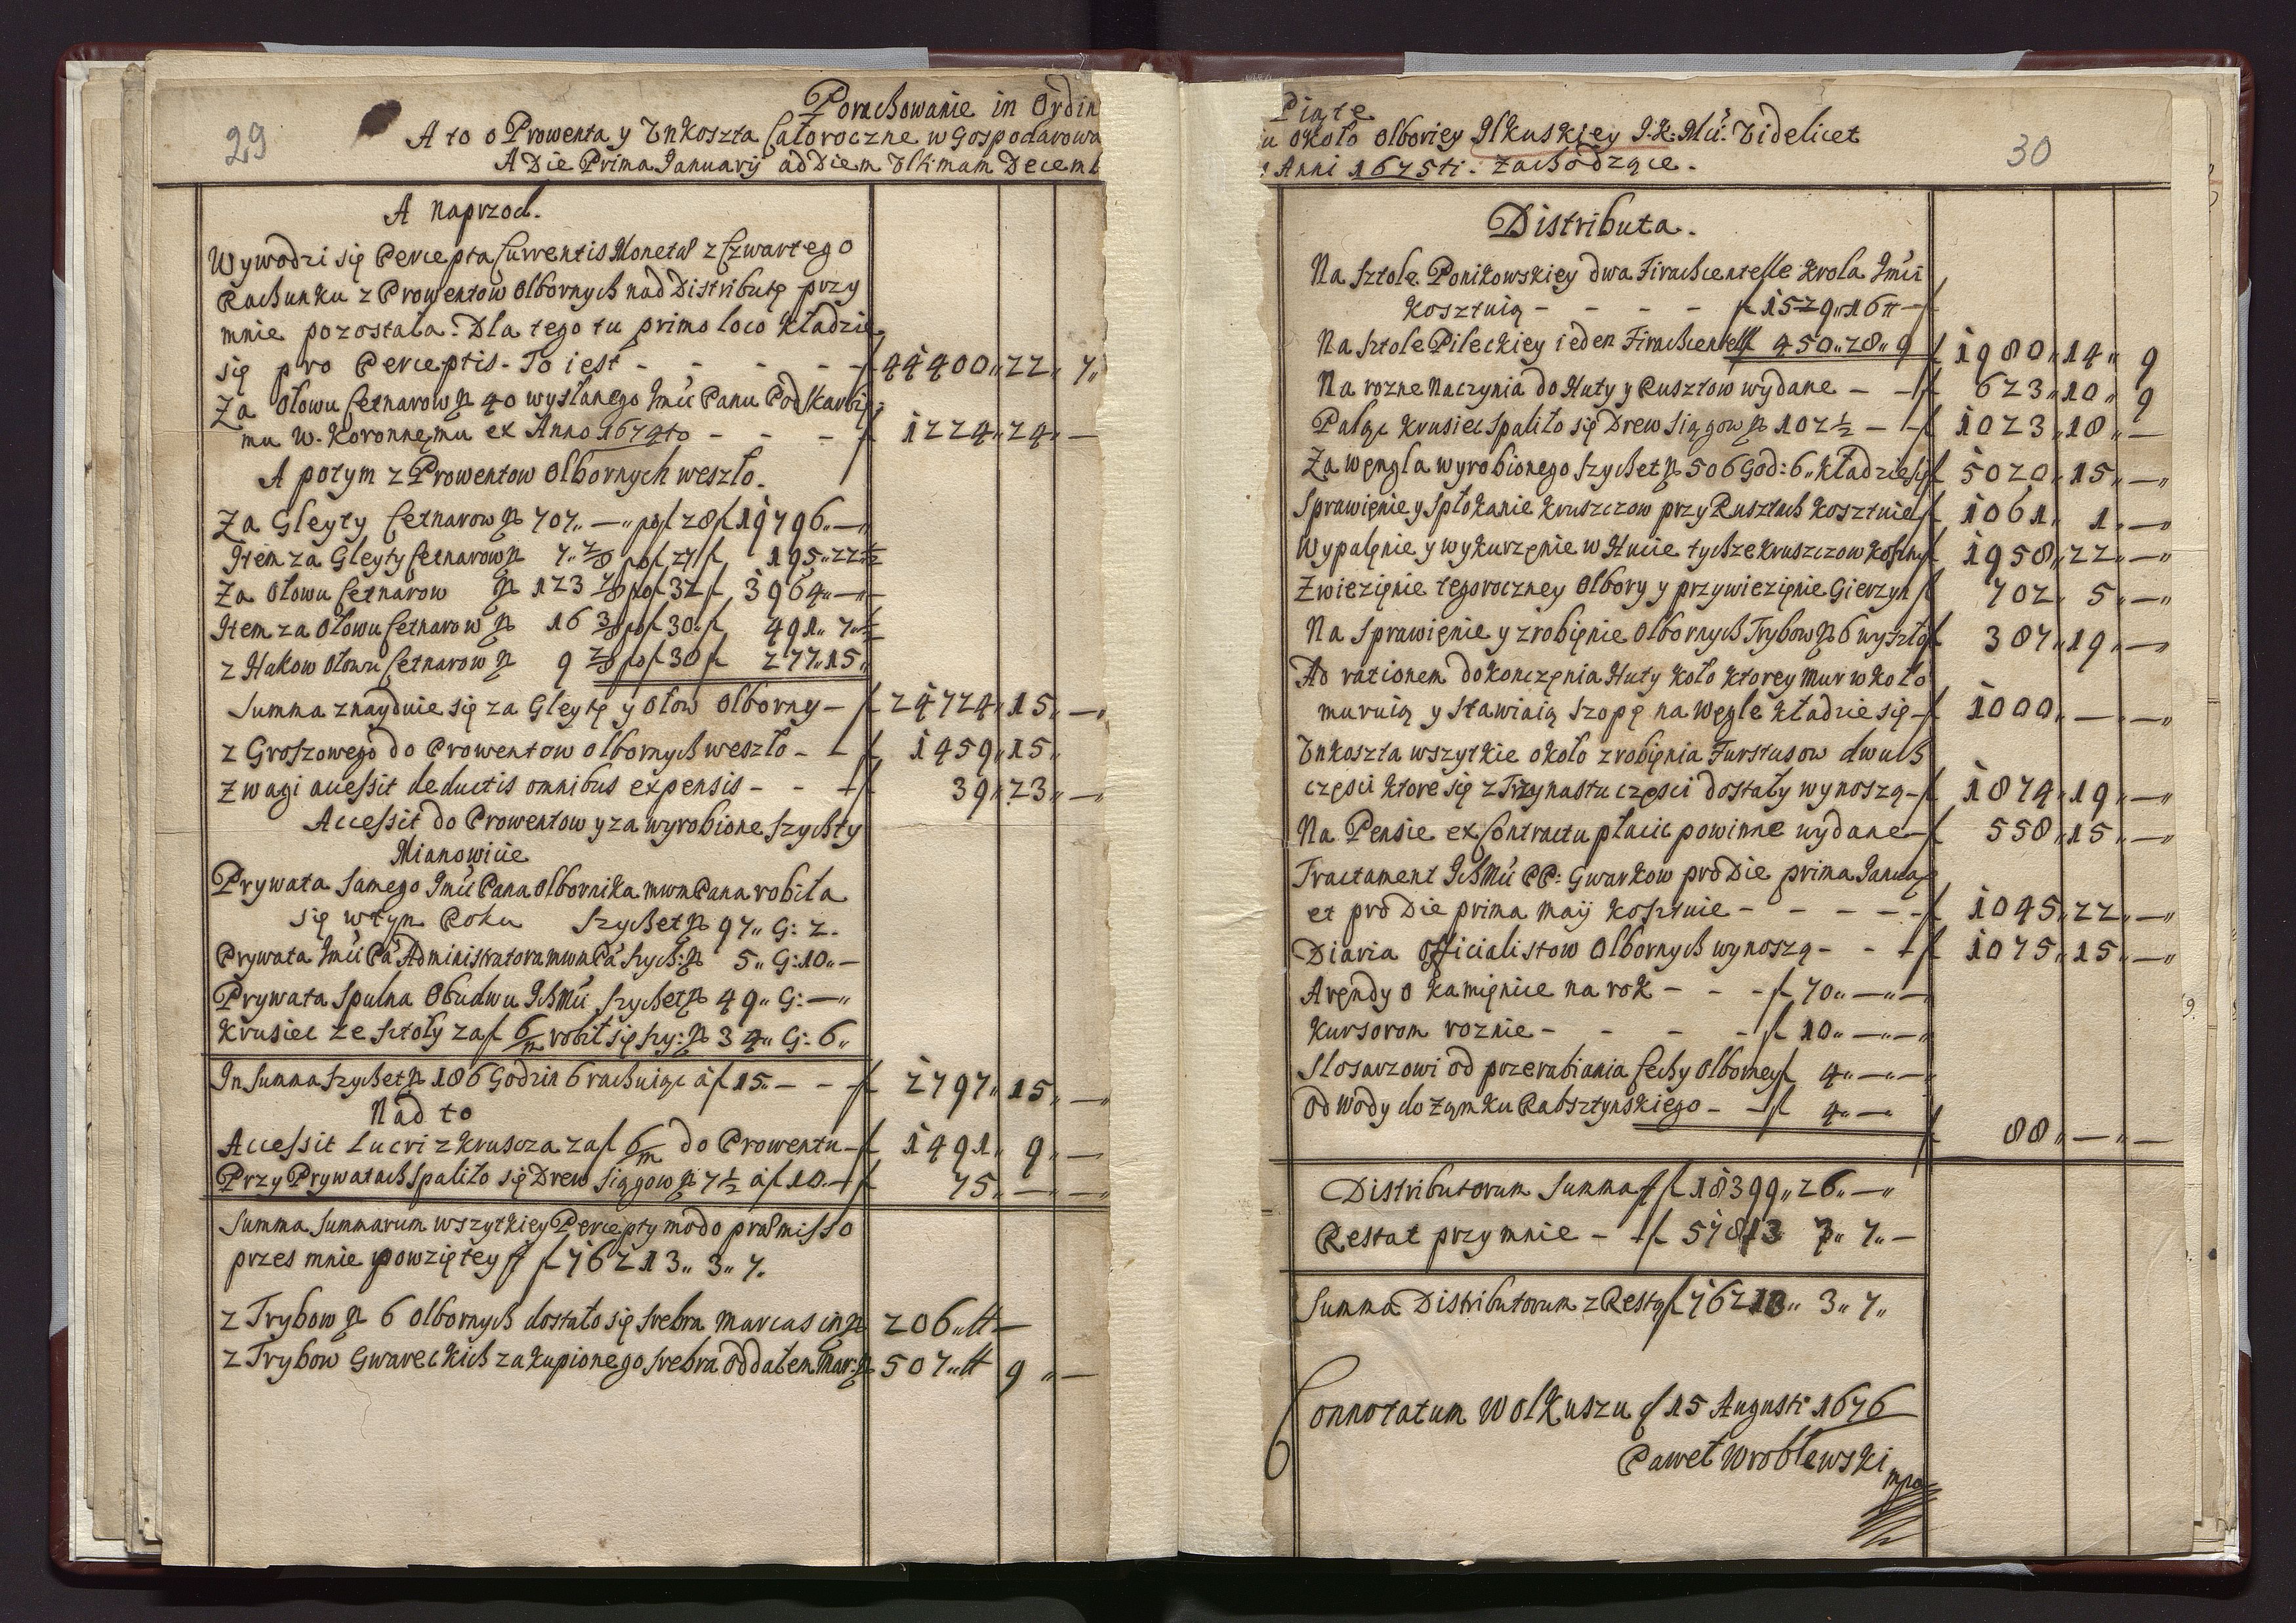 29
Porachowanie in Ordin
A to o Prowenta y Vnkoszta Całoroczne w Gospodarowa
A Die Prima Januarij ad Diem Vltimam Decemb
A naprzod.
Wywodzi się Percepta Currentis Monetæ z Czwartego
Rachunku z Prowentow Olbornych nad Distributę przy
mnie pozostała. Dla tego tu primo loco kładzie
się pro Perceptis. To iest - - - - - f 44400 „ 22 „ 7 „
Za Ołowu Cetnarow № 40 wysłanego Jmći Panu Podskarbie
mu W. Koronnęmu ex Anno 1674to - - - f 1224 „ 24 „ —
A potym z Prowentow Olbornych weszło.
Za Gleyty Cetnarow № 707 „ — „ po f 28 f 19796 „ — „
Item za Gleyty Cetnarow № 7 „ 2/8 po f 27 f 195 „ 22 ½
Za Ołowu Cetnarow № 123 7/8 po f 32 f 3964 „ — „ —
Item za Ołowu Cetnarow № 16 3/8 po f 30 „ f 491 „ 7 „ ½
z Hakow Ołowu Cetnarow № 9 2/8 po f 30 f 277 „ 15 „
Summa znayduie się za Gleytę y Ołow Olborny - f 24724 „ 15 „ — „
z Groszowego do Prowentow Olbornych weszło - - f 1459 „ 15 „
z wagi accessit deductis omnibus expensis - - - f 39 „ 23 „ — „
Accessit do Prowentow y za wyrobione Szychty
Mianowicie
Prywata samego Jmći Pana Olbornika mwm Pana robiła
się w tym Roku Szychet № 97 „ G: 2.
Prywata Jmći Pá Administratora mwm Pá Szych: № 5 „ G: 10 „ —
Prywata Spulna Obudwu Ichmći Szychet № 49 „ G: — „
Krusiec ze sztoły za f 6/m robił się Szy: № 34 „ G: 6 „
In Summa Szychet № 186 Godzin 6 rachuiąc á f 15 „ - - - f 2797 „ 15 „ —
Nad to
Accessit Lucri z kruscza za f 6/m do Prowentu - f 1491 „ 9 „ —
Przy Prywatach spaliło się Drew Siągow № 7½ á f 10 - f 75 „ — „ —
Summa Summarum wszytkiey Percepty modo præmisso
przes mnie powziętey ff f 76213 „ 3 „ 7.
z Trybow № 6 Olbornych dostało się srebra Marcas in № 206 „ lt —
z Trybow Gwareckich zakupionego srebra oddałem Mar: № 507 „ lt 9 „ —
30
Piąte
u około Olboriey Ilkuskiey J.K: Mći. Videlicet
Anni 1675ti. Zachodzące.
Distributa.
Na Sztole Ponikowskiey dwa Firachentelle Krola Jmći
kosztuią - - - - - f 1529 „ 16 „ — f
Na Sztole Pileckiey ieden Firachentell f 450 „ 28 „ 9 f 1980 „ 14 „ 9
Na rozne Naczynia do Huty y Rusztow wydane - - f 623 „ 10 „ 9
Paląc Krusiec spaliło się Drew Siągow № 102½ - - f 1023 „ 18 „ —
Za węngla wyrobionego szychet № 506 God: 6 „ kładzie się f 5020 „ 15 „ — „
Sprawięnie y Spłokanie kruszczow przy Rusztach kosztuie f 1061 „ 1 „ — „
Wypalęnie y wykurzęnie w Hucie tychze kruszczow koszt. f 1958 „ 22 „ — „
Zwiezięnie tegoroczney Olbory y przywiezięnie Gierzyn f 702 „ 5 „ — „
Na Sprawięnie y zrobięnie Olbornych Trybow № 6 wyszło f 307 „ 19 „ — „
Ad rationem dokonczęnia Huty koło ktorey mur w koło
muruią y stawiaią szopę na węgle kładzie się - f 1000 „ — „ — „
Vnkoszta wszytkie około zrobięnia Furstusow dwuch
częsci ktore się z Trzynastu częsci dostały wynoszą - f 1874 „ 19 „ — „
Na Pensie ex Contractu płacic powinne wydane - f 558 „ 15 „ — „
Tractament Ichmći PP: Gwarkow pro Die prima Januar
et pro Die prima Maij kosztuie - - - - - f 1045 „ 22 „ — „
Diaria Officialistow Olbornych wynoszą - - - f 1075 „ 15 „ — „
Aręndy o kamięnice na rok - - - f 70 „ — „ —
Kursorom roznie - - - - - f 10 „ — „ —
Slosarzowi od przerabiania Cechy Olborney f 4 „ — „ —
Od Wody do Zamku Rabsztynskiego - - f 4 „ — f 88 „ — „ —
Distributorum Summa ff f 18399 „ 26 „ — „
Restat przy mnie - - f 57813 „ 7 „ 7 „ —
Summa Distributorum z Restą f 76213 „ 3 „ 7 „
Connotatum W Olkuszu d 15 Augusti 1676
Paweł Wroblewski
mpa